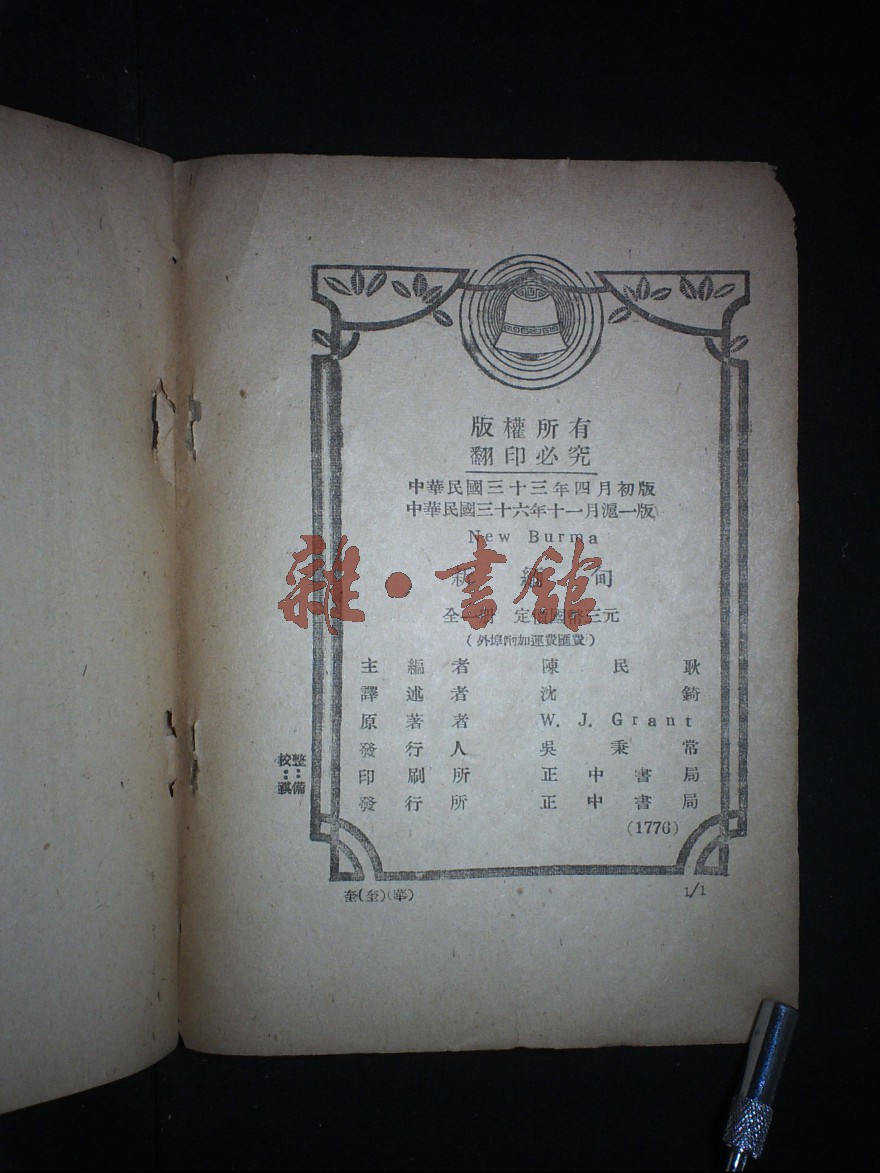 版權所有
翻印必究
中華民國三十三年四月初版
中華民國三十六年十一月滬一版
New Burma
新緬甸
全一册 定價國幣三元
(外埠酌加運費匯費)
主編者 陳民耿
譯述者 沈錡
原著者 W. J. Grant
發行人 吳秉常
印刷所 正中書局
發行所 正中書局
(1776)
校整
：：
祺備
1/1
雜·書館